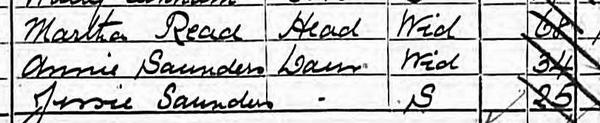 Martha Read Head Wid 68
Annie Saunders Daur Wid 34
Jessie Saunders - S 25